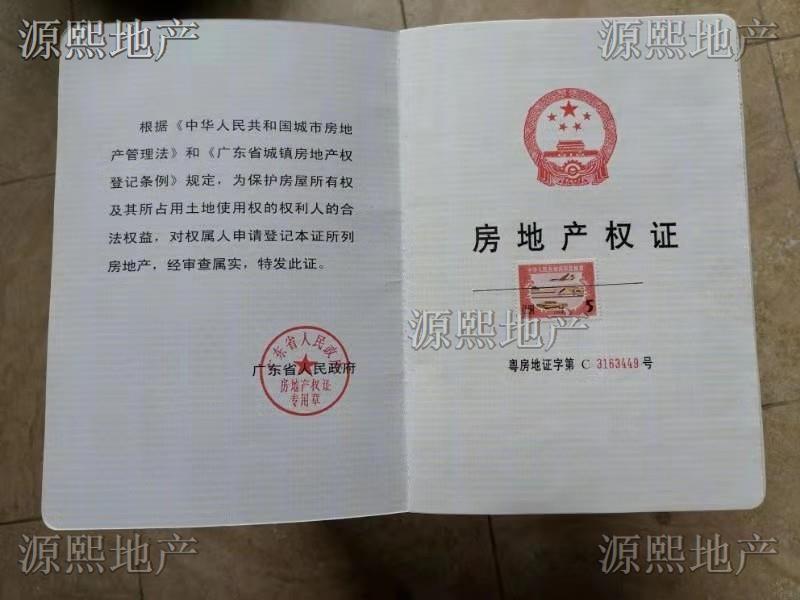 源熙地产
源熙地产
根据《中华人民共和国城市房地
产管理法》和《广东省城镇房地产权
登记条例》规定，为保护房屋所有权
及其所占用土地使用权的权利人的合
法权益，对权属人申请登记本证所列
房地产，经审查属实，特发此证。
广东省人民政府
广东省人民政府
房地产权证
专用章
房地产权证
5
源熙地产
粤房地证字第 C 3163449 号
源熙地产
源熙地产